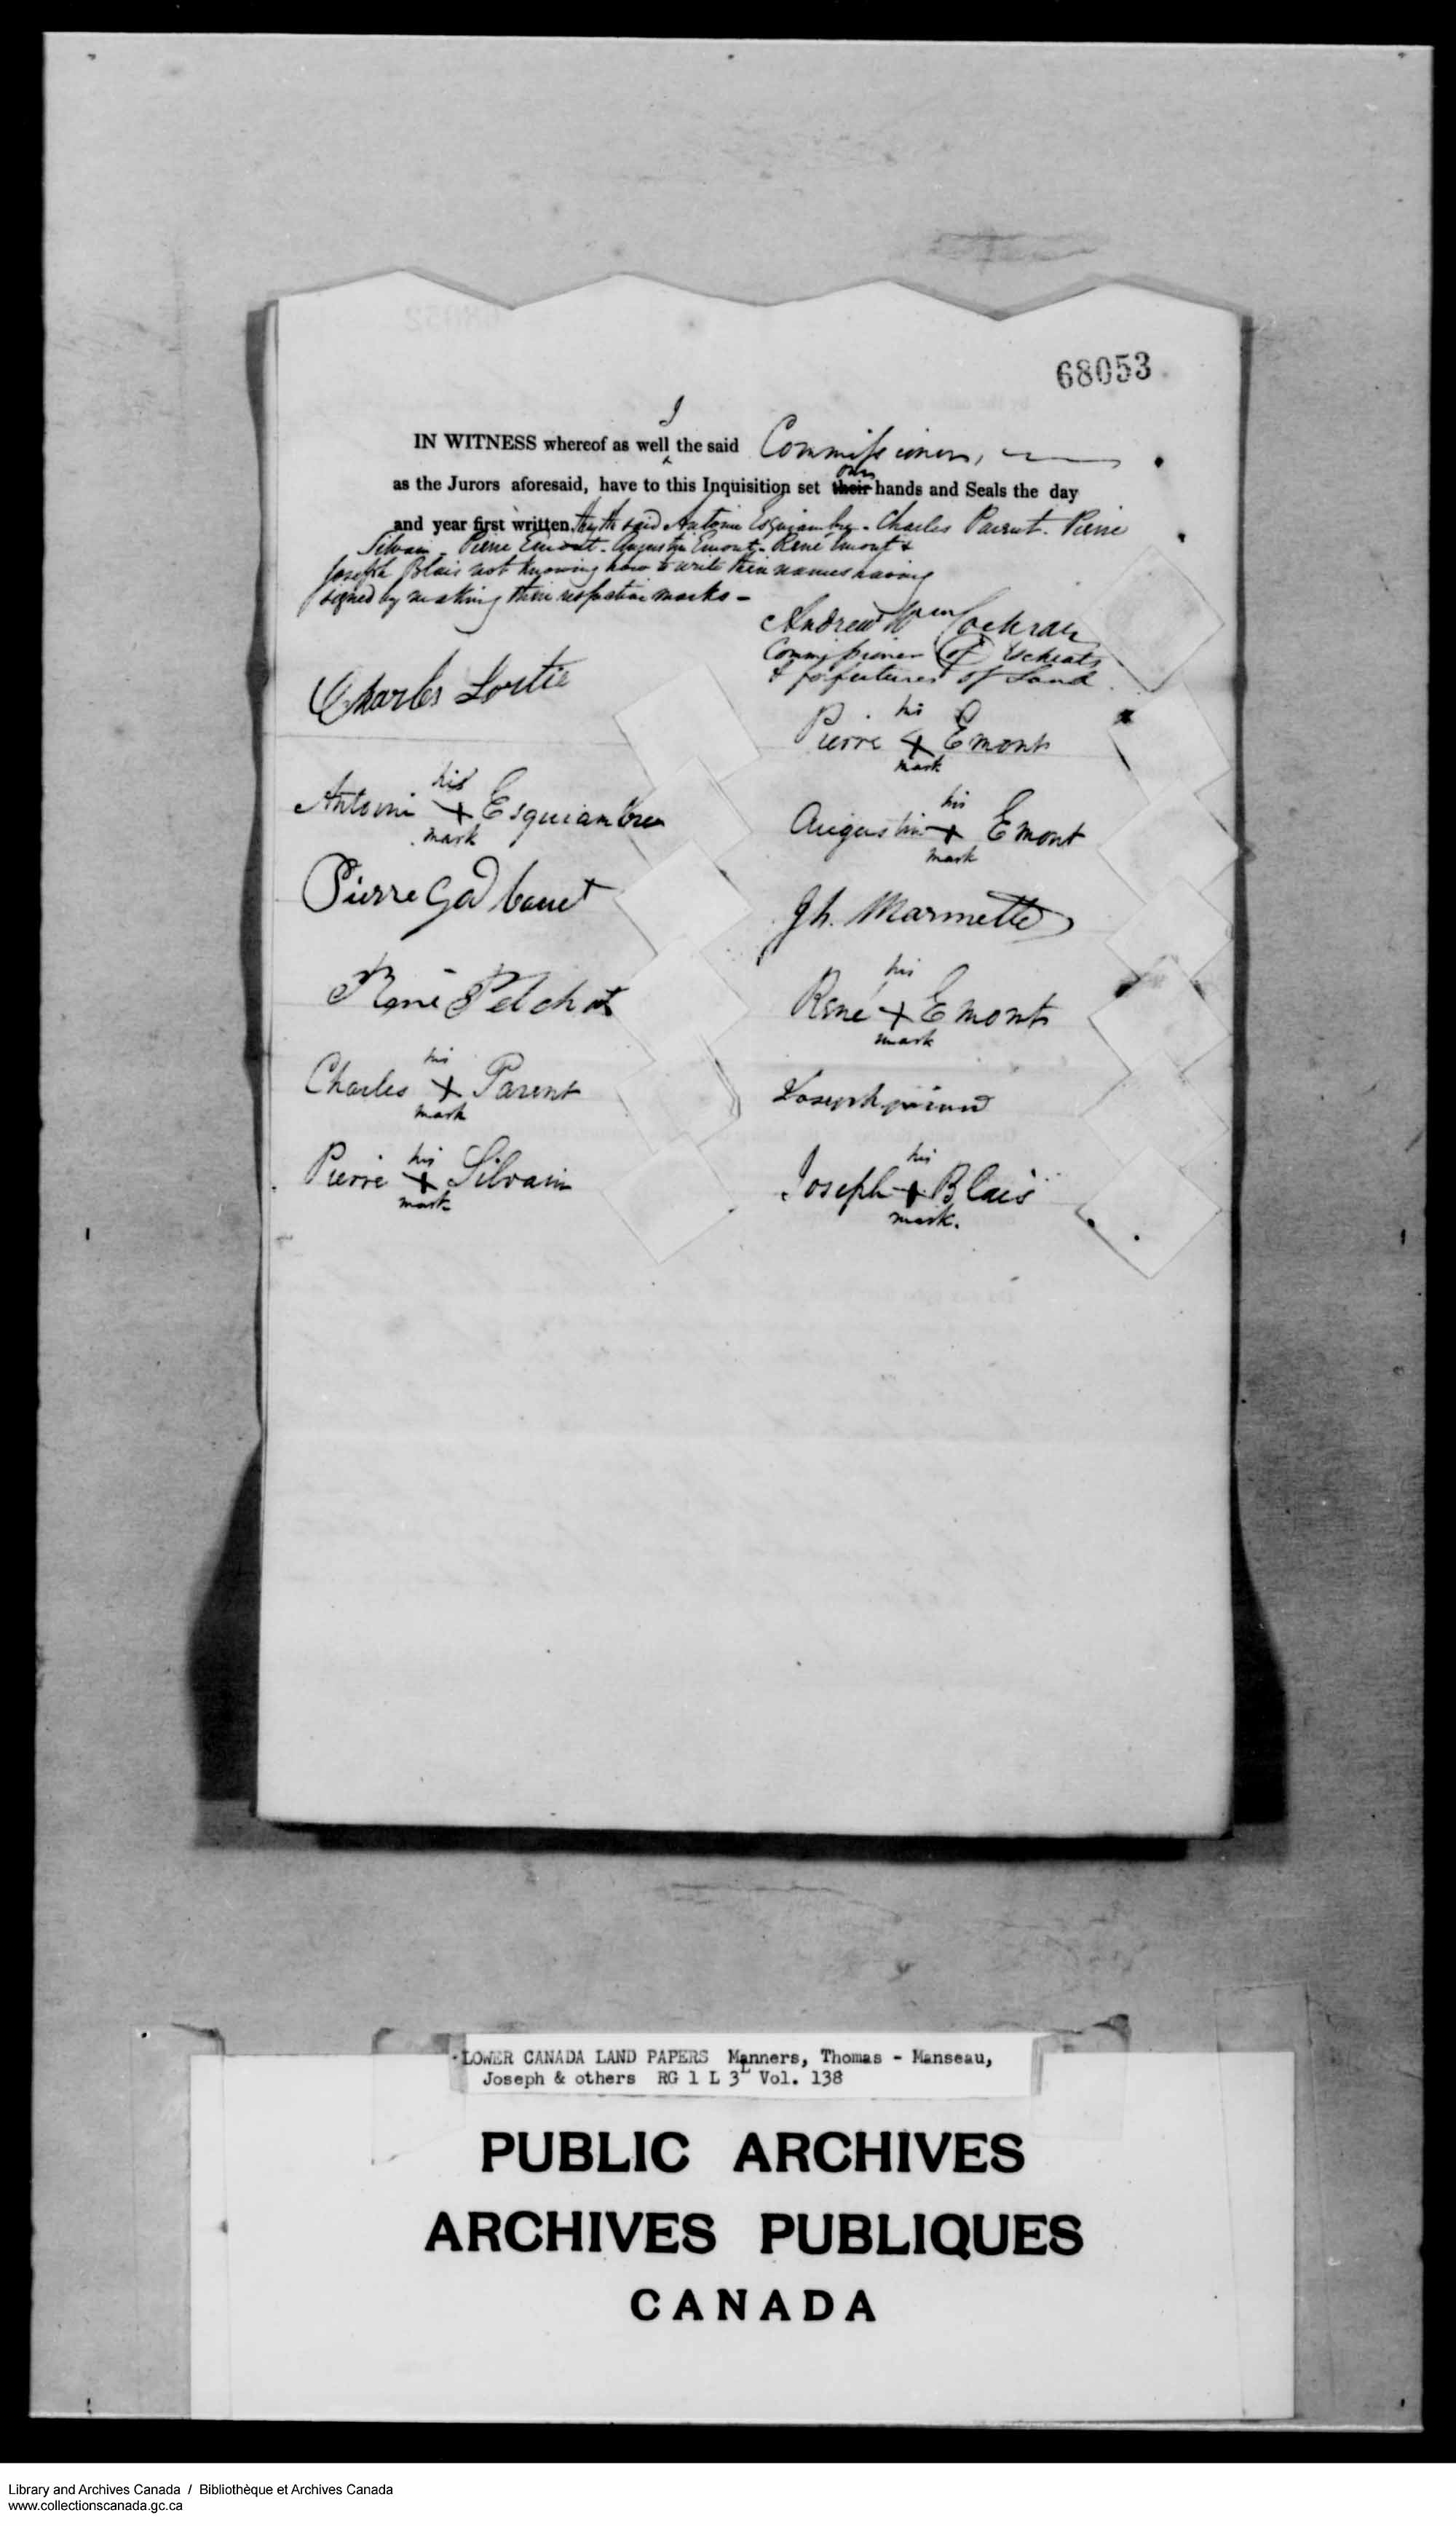 68053
I
IN WITNESS whereof as well the said Commissioner,
our
as the Jurors aforesaid, have to this Inquisition set their hands and Seals the day
and year first written, the said Antoine Esquiambre - Charles Parent - Pierre
Silvain - Pierre Emont - Augustin Emont - René Emont &
Joseph Blais not knowing how to write their names having
signed by making their respective marks -
Andrew Wm Cochran
Commissioner of Escheats
& forfeitures of Land
Charles Lortie
his
Pierre + Emont
mark
his
Antoine + Esquiambre
mark
his
Augustin + Emont
mark
Pierre Godbout
Jh. Marmette
René Pelchat
his
René + Emont
mark
his
Charles + Parent
mark
Joseph
his
Pierre + Silvain
mark
his
Joseph + Blais
mark.
LOWER CANADA LAND PAPERS Manners, Thomas - Manseau,
Joseph & others RG 1 L 3L Vol. 138
PUBLIC ARCHIVES
ARCHIVES PUBLIQUES
CANADA
Library and Archives Canada / Bibliothèque et Archives Canada
www.collectionscanada.gc.ca